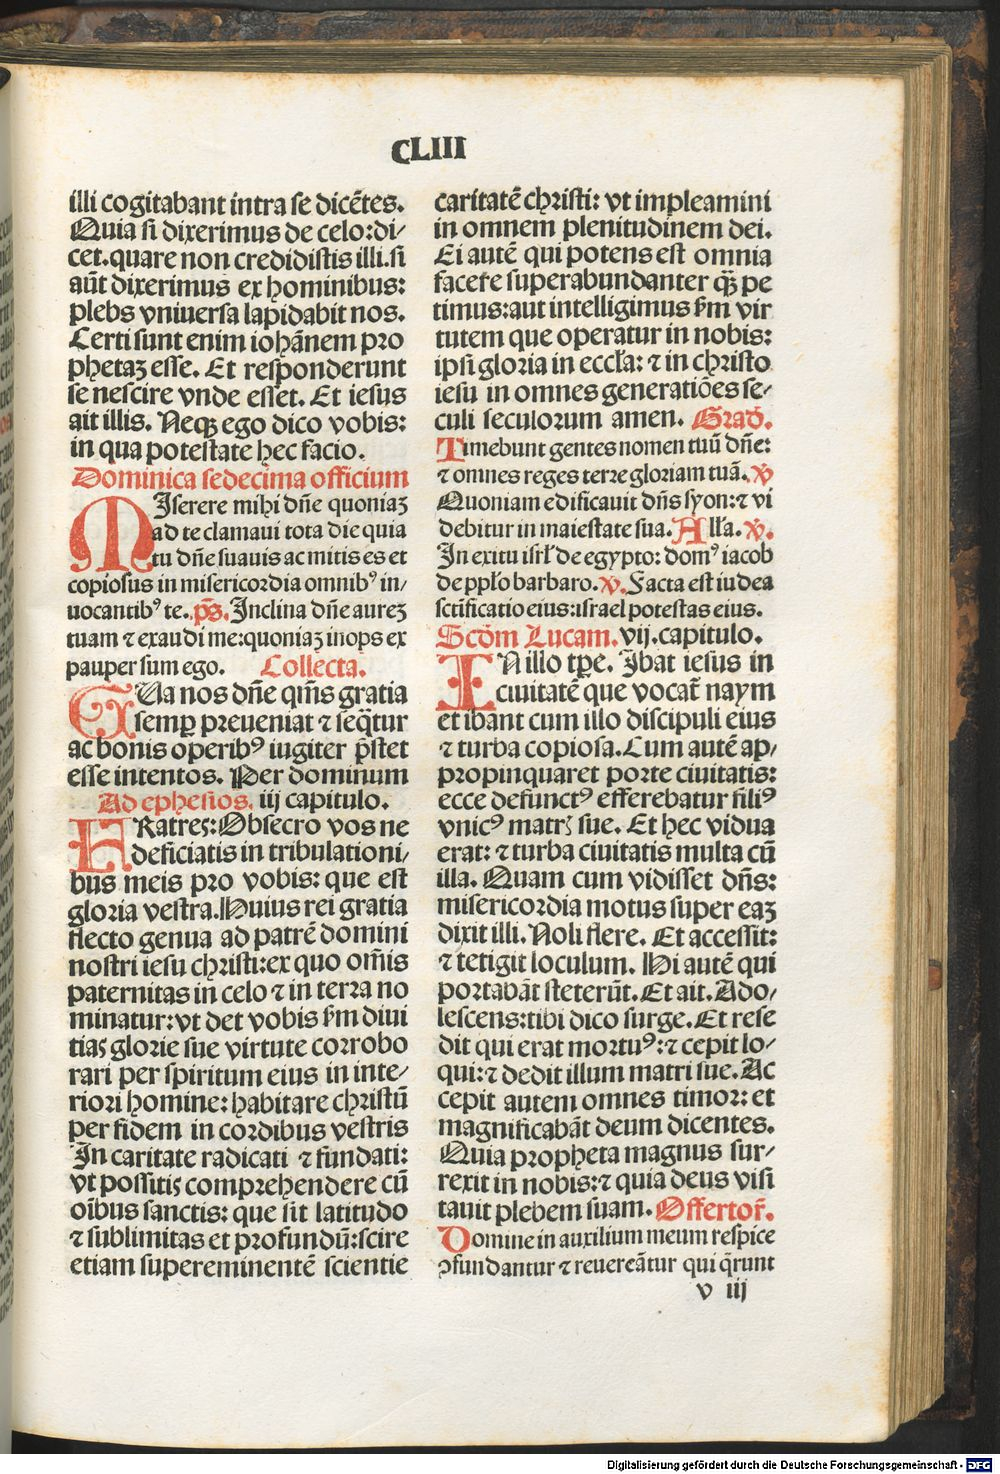 CLIII
illi cogitabant intra se dicētes.
Quia si dixerimus de celo:di/
cet.quare non credidistis illi.si
aūt dixerimus ex hominibus:
plebs vniuersa lapidabit nos.
Certi sunt enim iohānem pro
phetaꝫ esse. Et responderunt
se nescire vnde esset. Et iesus
ait illis. Neqꝫ ego dico vobis:
in qua potestate hec facio.
Dominica sedecima officium
MIserere mihi dn̄e quoniaꝫ
ad te clamaui tota die quia
tu dn̄e suauis ac mitis es et
copiosus in misericordia omnibꝰ in/
uocantibꝰ te. ps̄. Inclina dn̄e aureꝫ
tuam ⁊ exaudi me:quoniaꝫ inops ex
pauper sum ego. Collecta.
TUa nos dn̄e qm̄s gratia
semꝑ preueniat ⁊ seq̄tur
ac bonis operibꝰ iugiter p̄stet
esse intentos. Per dominum
Ad ephesios. iij capitulo.
FRatres:Obsecro vos ne
deficiatis in tribulationi/
bus meis pro vobis: que est
gloria vestra.Huius rei gratia
flecto genua ad patrē domini
nostri iesu christi:ex quo om̄is
paternitas in celo ⁊ in terra no
minatur:vt det vobis sm̄ diui
tias glorie sue virtute corrobo
rari per spiritum eius in inte/
riori homine: habitare christū
per fidem in cordibus vestris
In caritate radicati ⁊ fundati:
vt possitis comprehendere cū
oībus sanctis: que sit latitudo
⁊ sublimitas et profundū:scire
etiam supereminentē scientie
caritatē christi: vt impleamini
in omnem plenitudinem dei.
Ei autē qui potens est omnia
facere superabundanter qꝫ̄ pe
timus:aut intelligimus sm̄ vir
tutem que operatur in nobis:
ipsi gloria in eccl'a: ⁊ in christo
iesu in omnes generatiōes se/
culi seculorum amen. Grad'.
Timebunt gentes nomen tuū dn̄e:
⁊ omnes reges terre gloriam tuā. ꝟ
Quoniam edificauit dn̄s syon:⁊ vi
debitur in maiestate sua. All'a. ꝟ.
In exitu isr̄l de egypto: domꝰ iacob
de ppl'o barbaro. ꝟ. Facta est iudea
sctificatio eius:israel potestas eius.
Scdm̄ Lucam. vij.capitulo.
IN illo tp̄e. Ibat iesus in
ciuitatē que vocat̄ naym
et ibant cum illo discipuli eius
⁊ turba copiosa.Cum autē ap/
propinquaret porte ciuitatis:
ecce defunctꝰ efferebatur filiꝰ
vnicꝰ matrꝭ sue. Et hec vidua
erat: ⁊ turba ciuitatis multa cū
illa. Quam cum vidisset dn̄s:
misericordia motus super eaꝫ
dixit illi. Noli flere. Et accessit:
⁊ tetigit loculum. Hi autē qui
portabāt steterūt. Et ait. Ado/
lescens:tibi dico surge. Et rese
dit qui erat mortuꝰ:⁊ cepit lo/
qui:⁊ dedit illum matri sue. Ac
cepit autem omnes timor: et
magnificabāt deum dicentes.
Quia propheta magnus sur/
rexit in nobis:⁊ quia deus visi
tauit plebem suam. Offertor̄.
Domine in auxilium meum respice
ꝯfundantur ⁊ reuereātur qui q̄runt
v iij
Digitalisierung gefördert durch die Deutsche Forschungsgemeinschaft - DFG